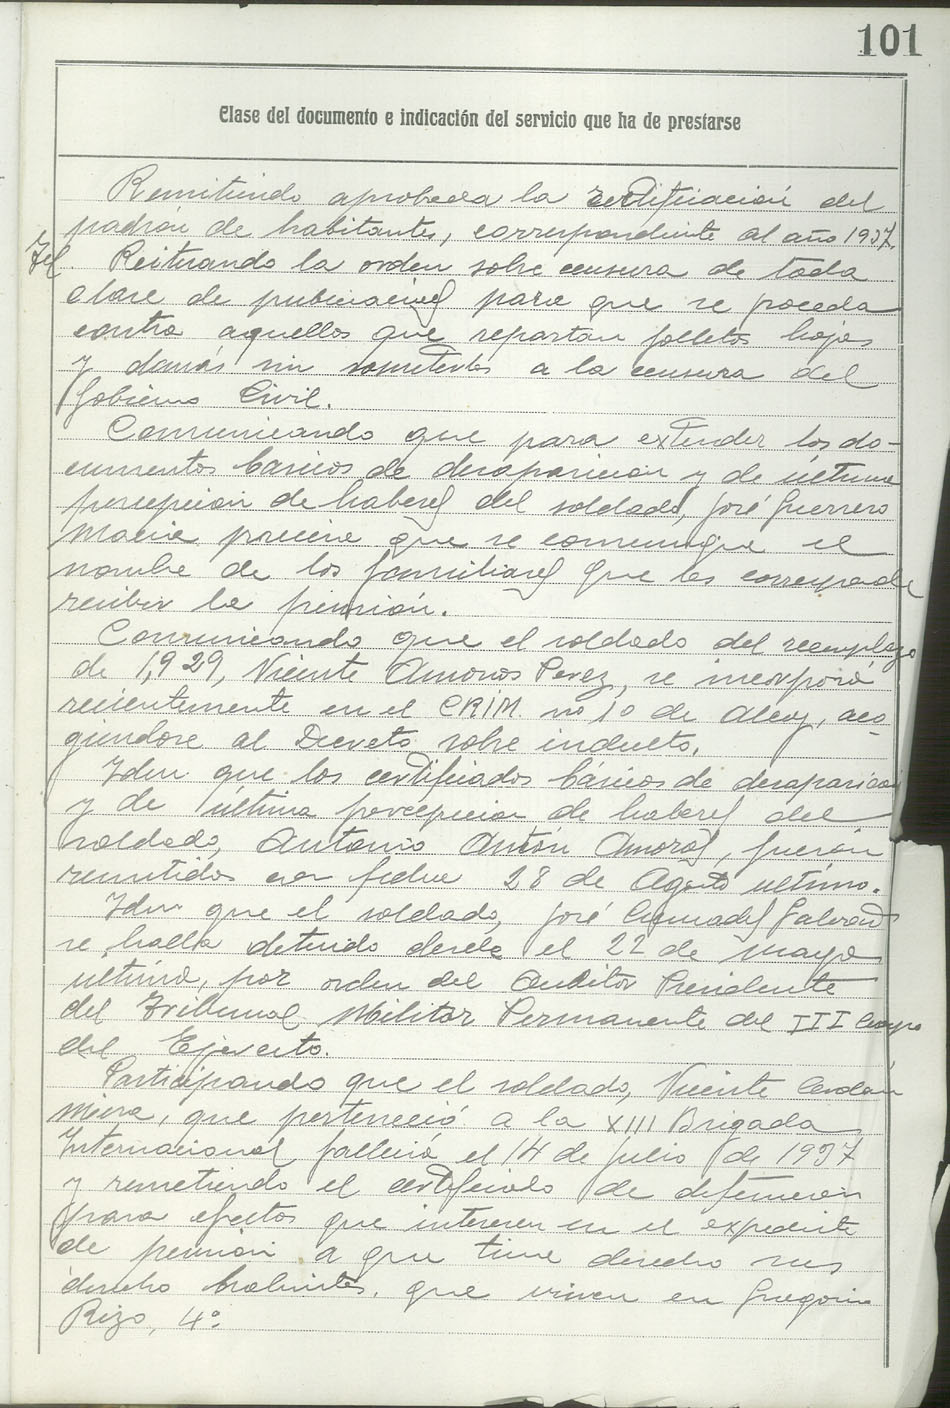 101
Clase del documento e indicación del servicio que ha de prestarse
Remitiendo aprobada la rectificación del
padrón de habitantes, correspondiente al año 1937.
Reiterando la orden sobre censura de toda
clase de publicaciones para que se proceda
contra aquellos que repartan folletos hojas
y demás sin someterlos a la censura del
Gobierno Civil.
Comunicando que para extender los do-
cumentos básicos de desaparicion y de última
percepcion de haberes del soldado, José Guerrero
Maciá precisa que se comunique el
nombre de los familiares que les corresponde
recibir la pensión.
Comunicando que el soldado del reemplazo
de 1,929, Vicente Amoros Perez, se incorporó
recientemente en el CRIM. nº 10 de Alcoy, aco-
giendose al Decreto sobre indulto.
Idem que los certificados básicos de desaparicion
y de última percepcion de haberes del
soldado, Antonio Antón Amorós, fueron
remitidos con fecha 28 de Agosto ultimo.
Idem que el soldado, José
se halla detenido desde el 22 de Mayo
ultimo, por orden del Auditor Presidente
del Tribunal Militar Permanente del III Cuerpo
del Ejercito.
Participando que el soldado, Vicente Cerdán
Mira, que perteneció a la XIII Brigada
Internacional falleció el 14 de Julio de 1937
y remetiendo el certificado de defuncion
para efectos que interesen en el expediente
de pensión a que tiene derecho sus
derecho habientes, que viven en Gregorio
Rizo, 4º